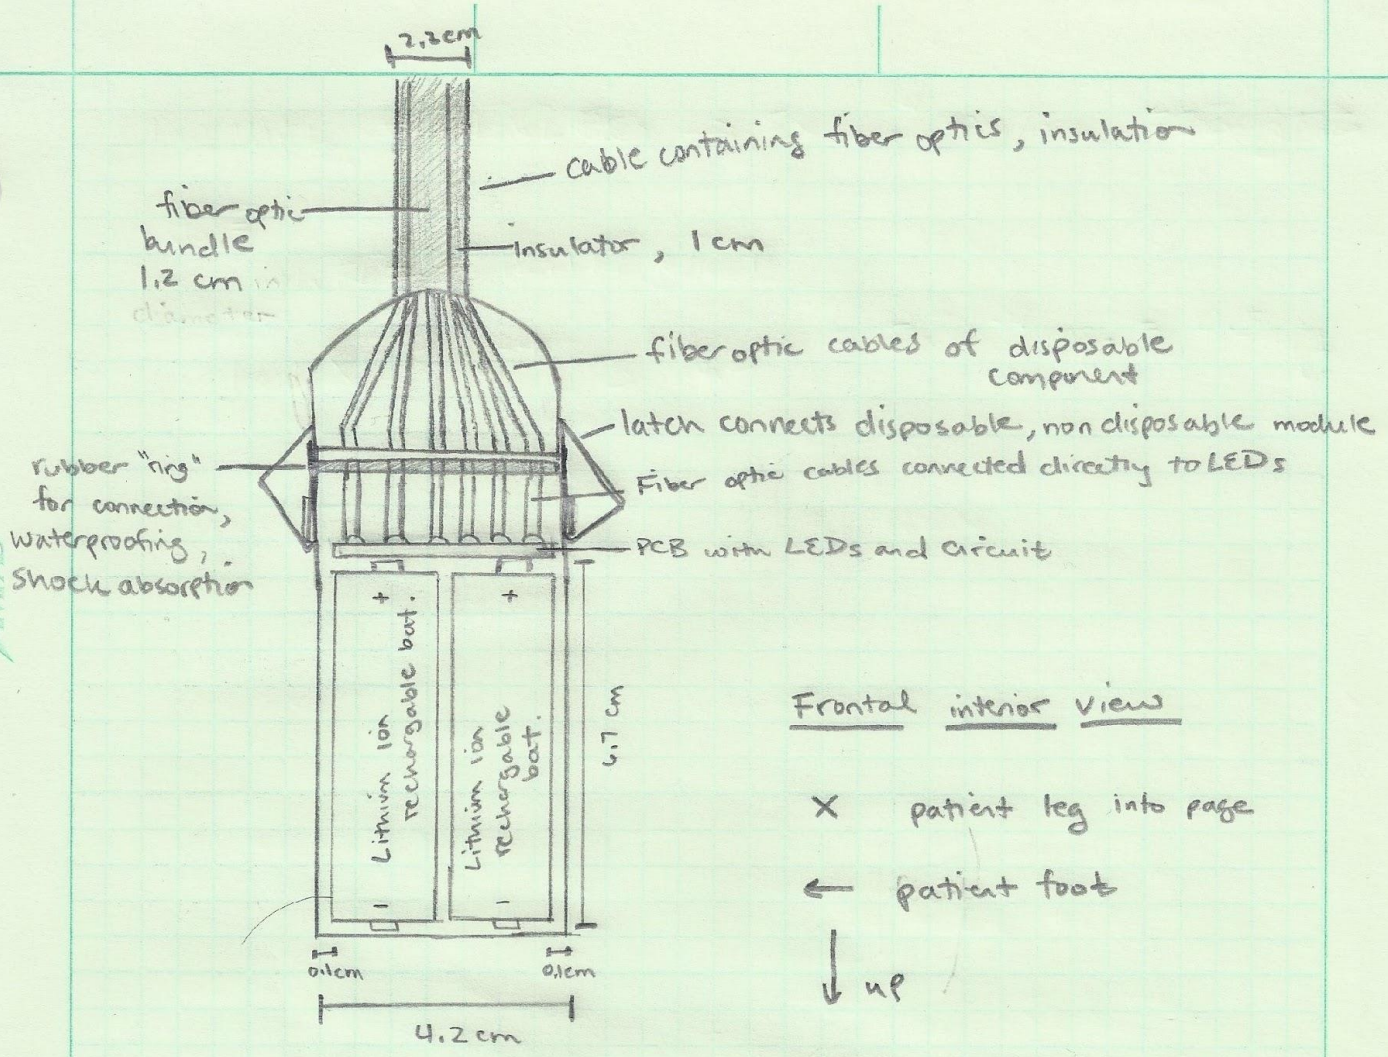 2.2cm
cable containing fiber optics, insulation
fiber optic
bundle
1.2 cm in
diameter
insulator, 1 cm
fiber optic cables of disposable
component
latch connects disposable, non disposable module
rubber "ring"
for connection,
waterproofing,
shock absorption
Fiber optic cables connected directly to LEDs
PCB with LEDs and circuit
+
+
Lithium ion
rechargable bat.
Lithium ion
rechargable
bat.
-
-
6.7 cm
Frontal interior view
X patient leg into page
← patient foot
↓ up
0.1cm
0.1cm
4.2cm